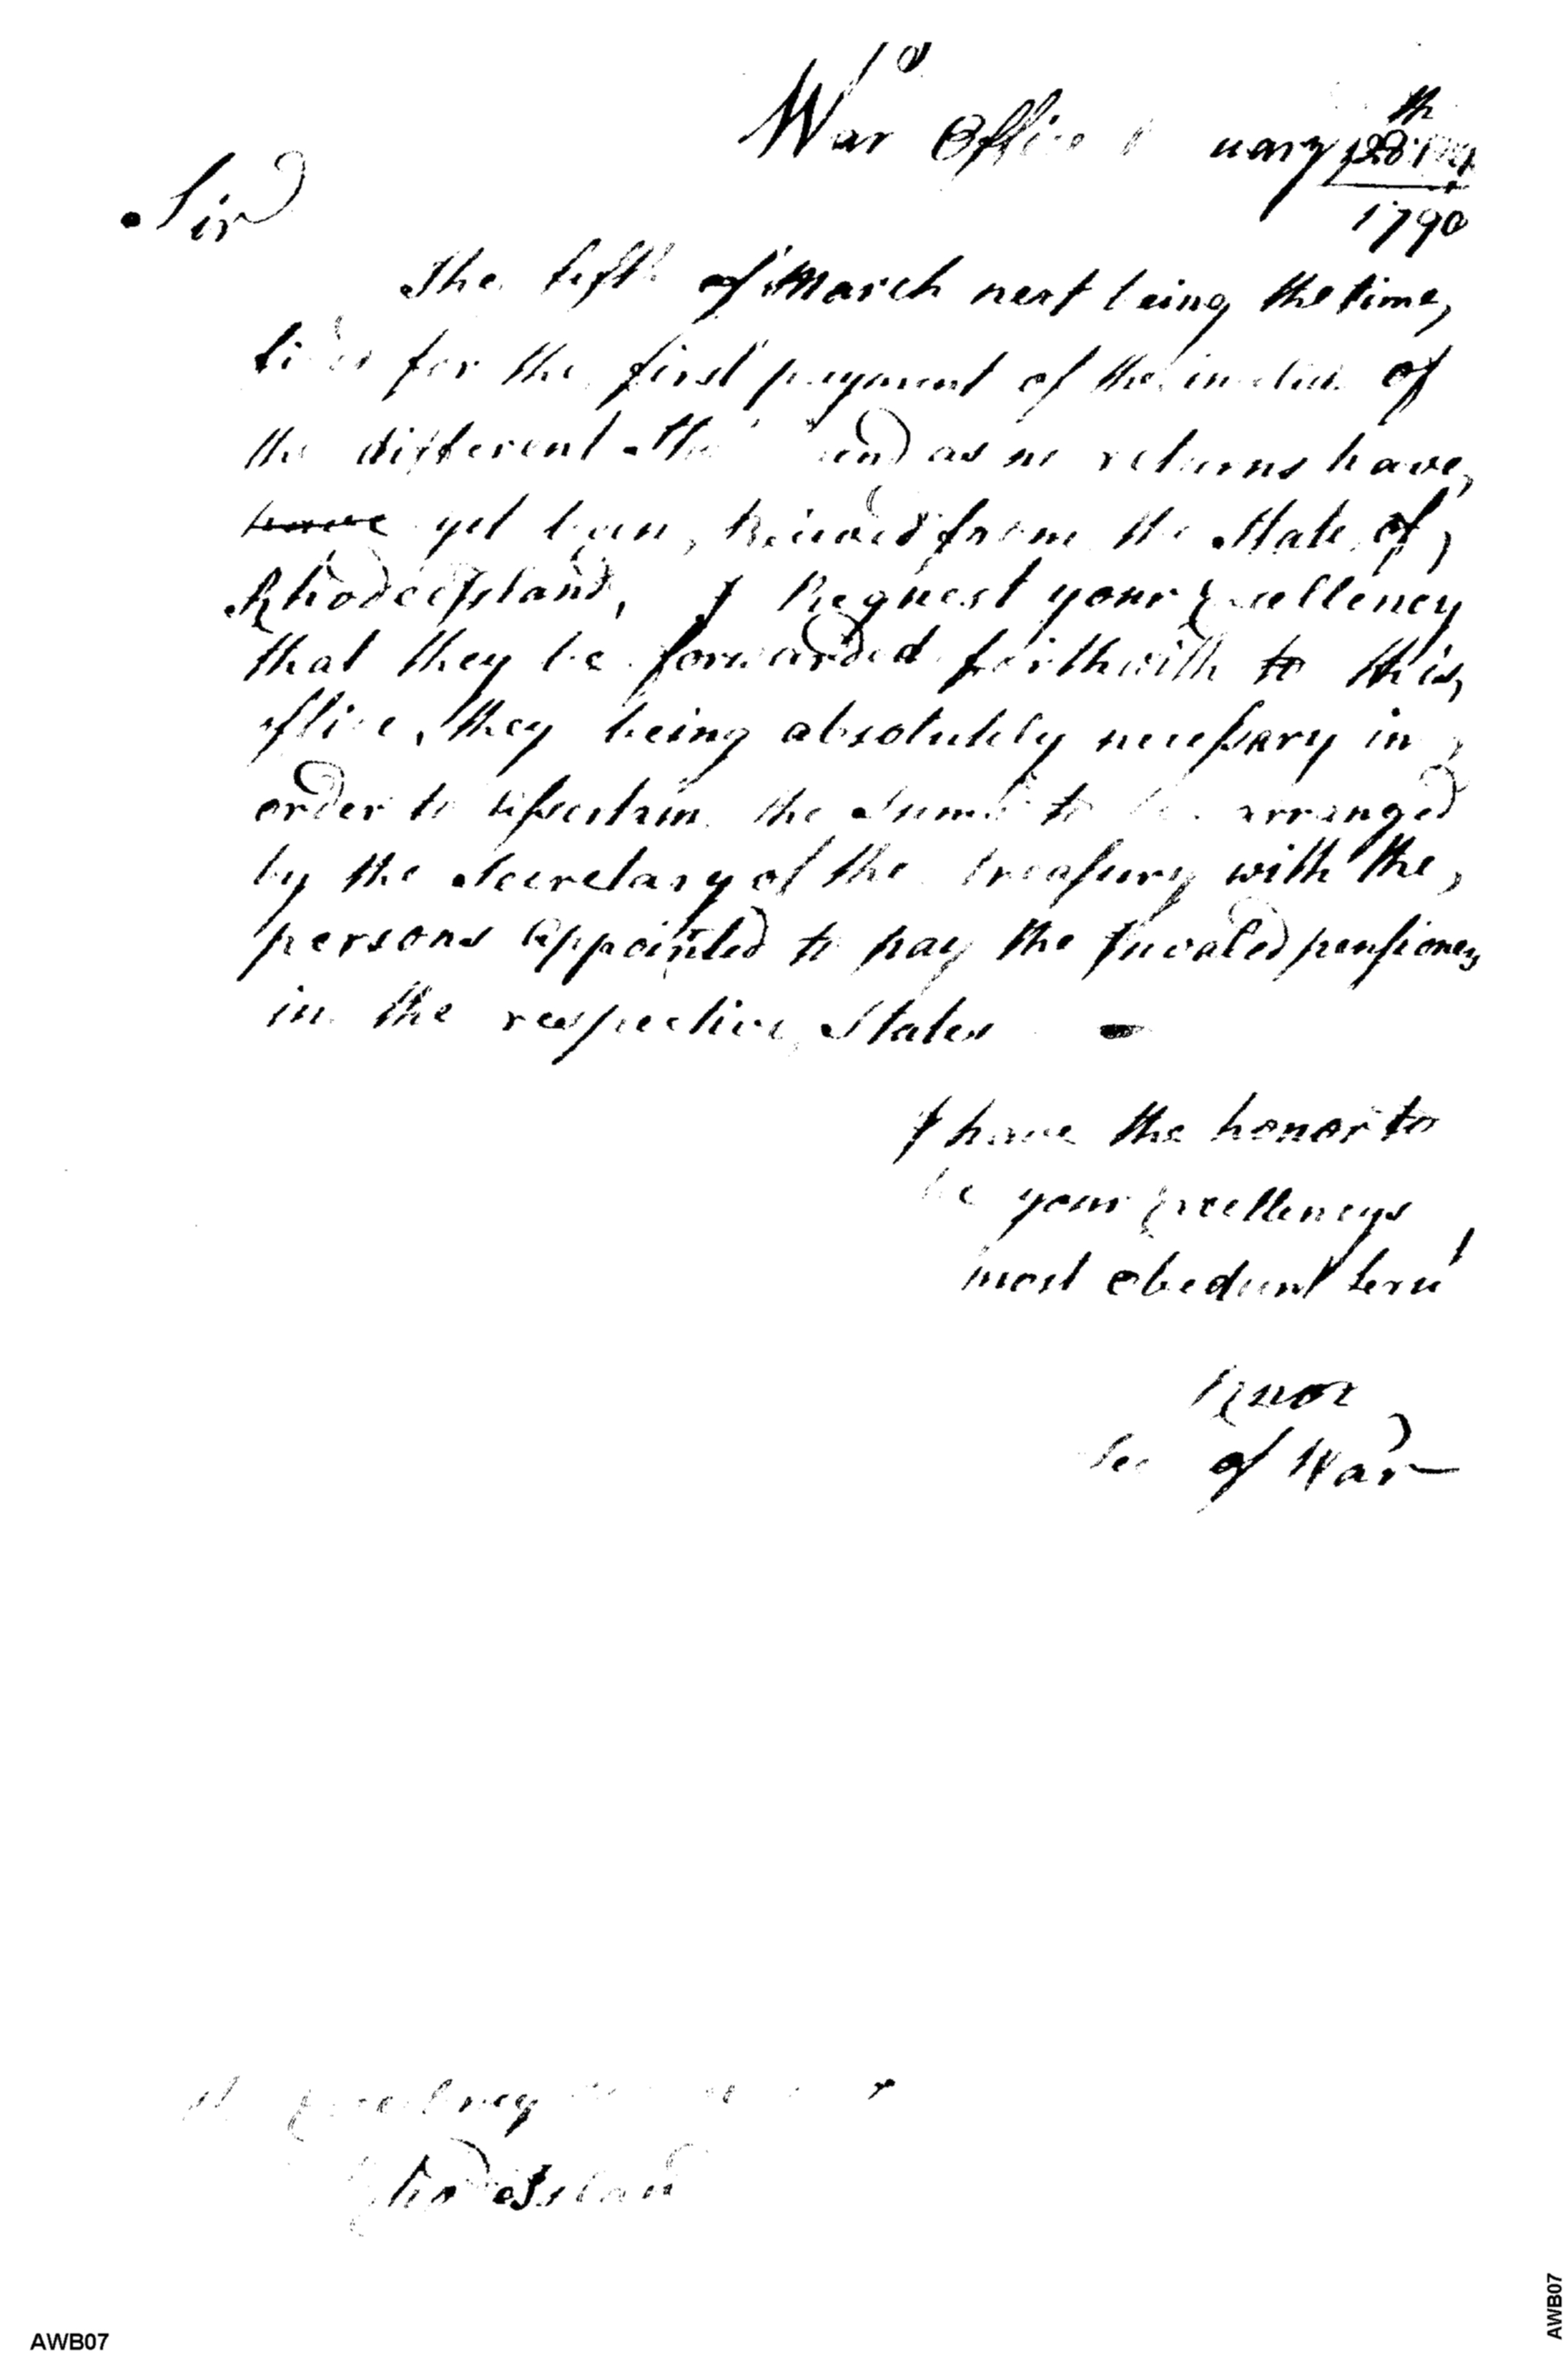 War Office uary 28th
1790
Sir
The fifth of March next being the time,
for the first payment of the of
the different and as no returns have,
have yet been, Received from the State of,
RhodeIsland, I Request your Excellency
that they be forwarded forthwith to this,
office, they being absolutely necessary in,
order to the Sums to be arranged
by the Secretary of the treasury with the,
persons Appointed to pay the Invaled pensioners
in the respective, States
I have the honor to
be your Excellencys
most obedient Serv
Knox
Sec of War
Excellency
RhodeIsland
AWB07
AWB07